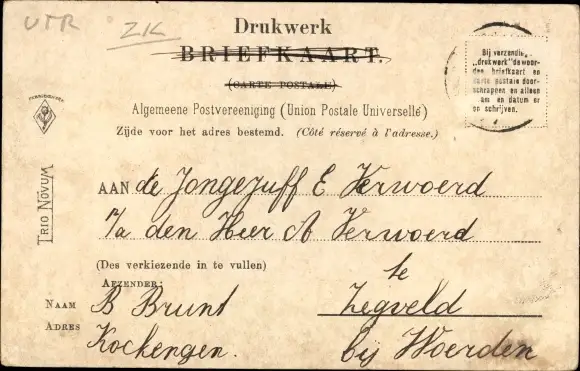 UTR ZK
Drukwerk
BRIEFKAART.
(CARTE POSTALE)
Algemeene Postvereeniging (Union Postale Universelle)
Zijde voor het adres bestemd. (Côté réservé à l'adresse.)
Bij verzending
„drukwerk" de woor-
den briefkaart en
carte postale door-
schrappen en alleen
am en datum er
op schrijven.
TRIO NOVUM
AAN de Jongejuff E Verwoerd
p/a den Heer A Verwoerd
(Des verkiezende in te vullen)
te
AFZENDER:
NAAM B Brunt
Zegveld
ADRES Kockengen.
bij Woerden